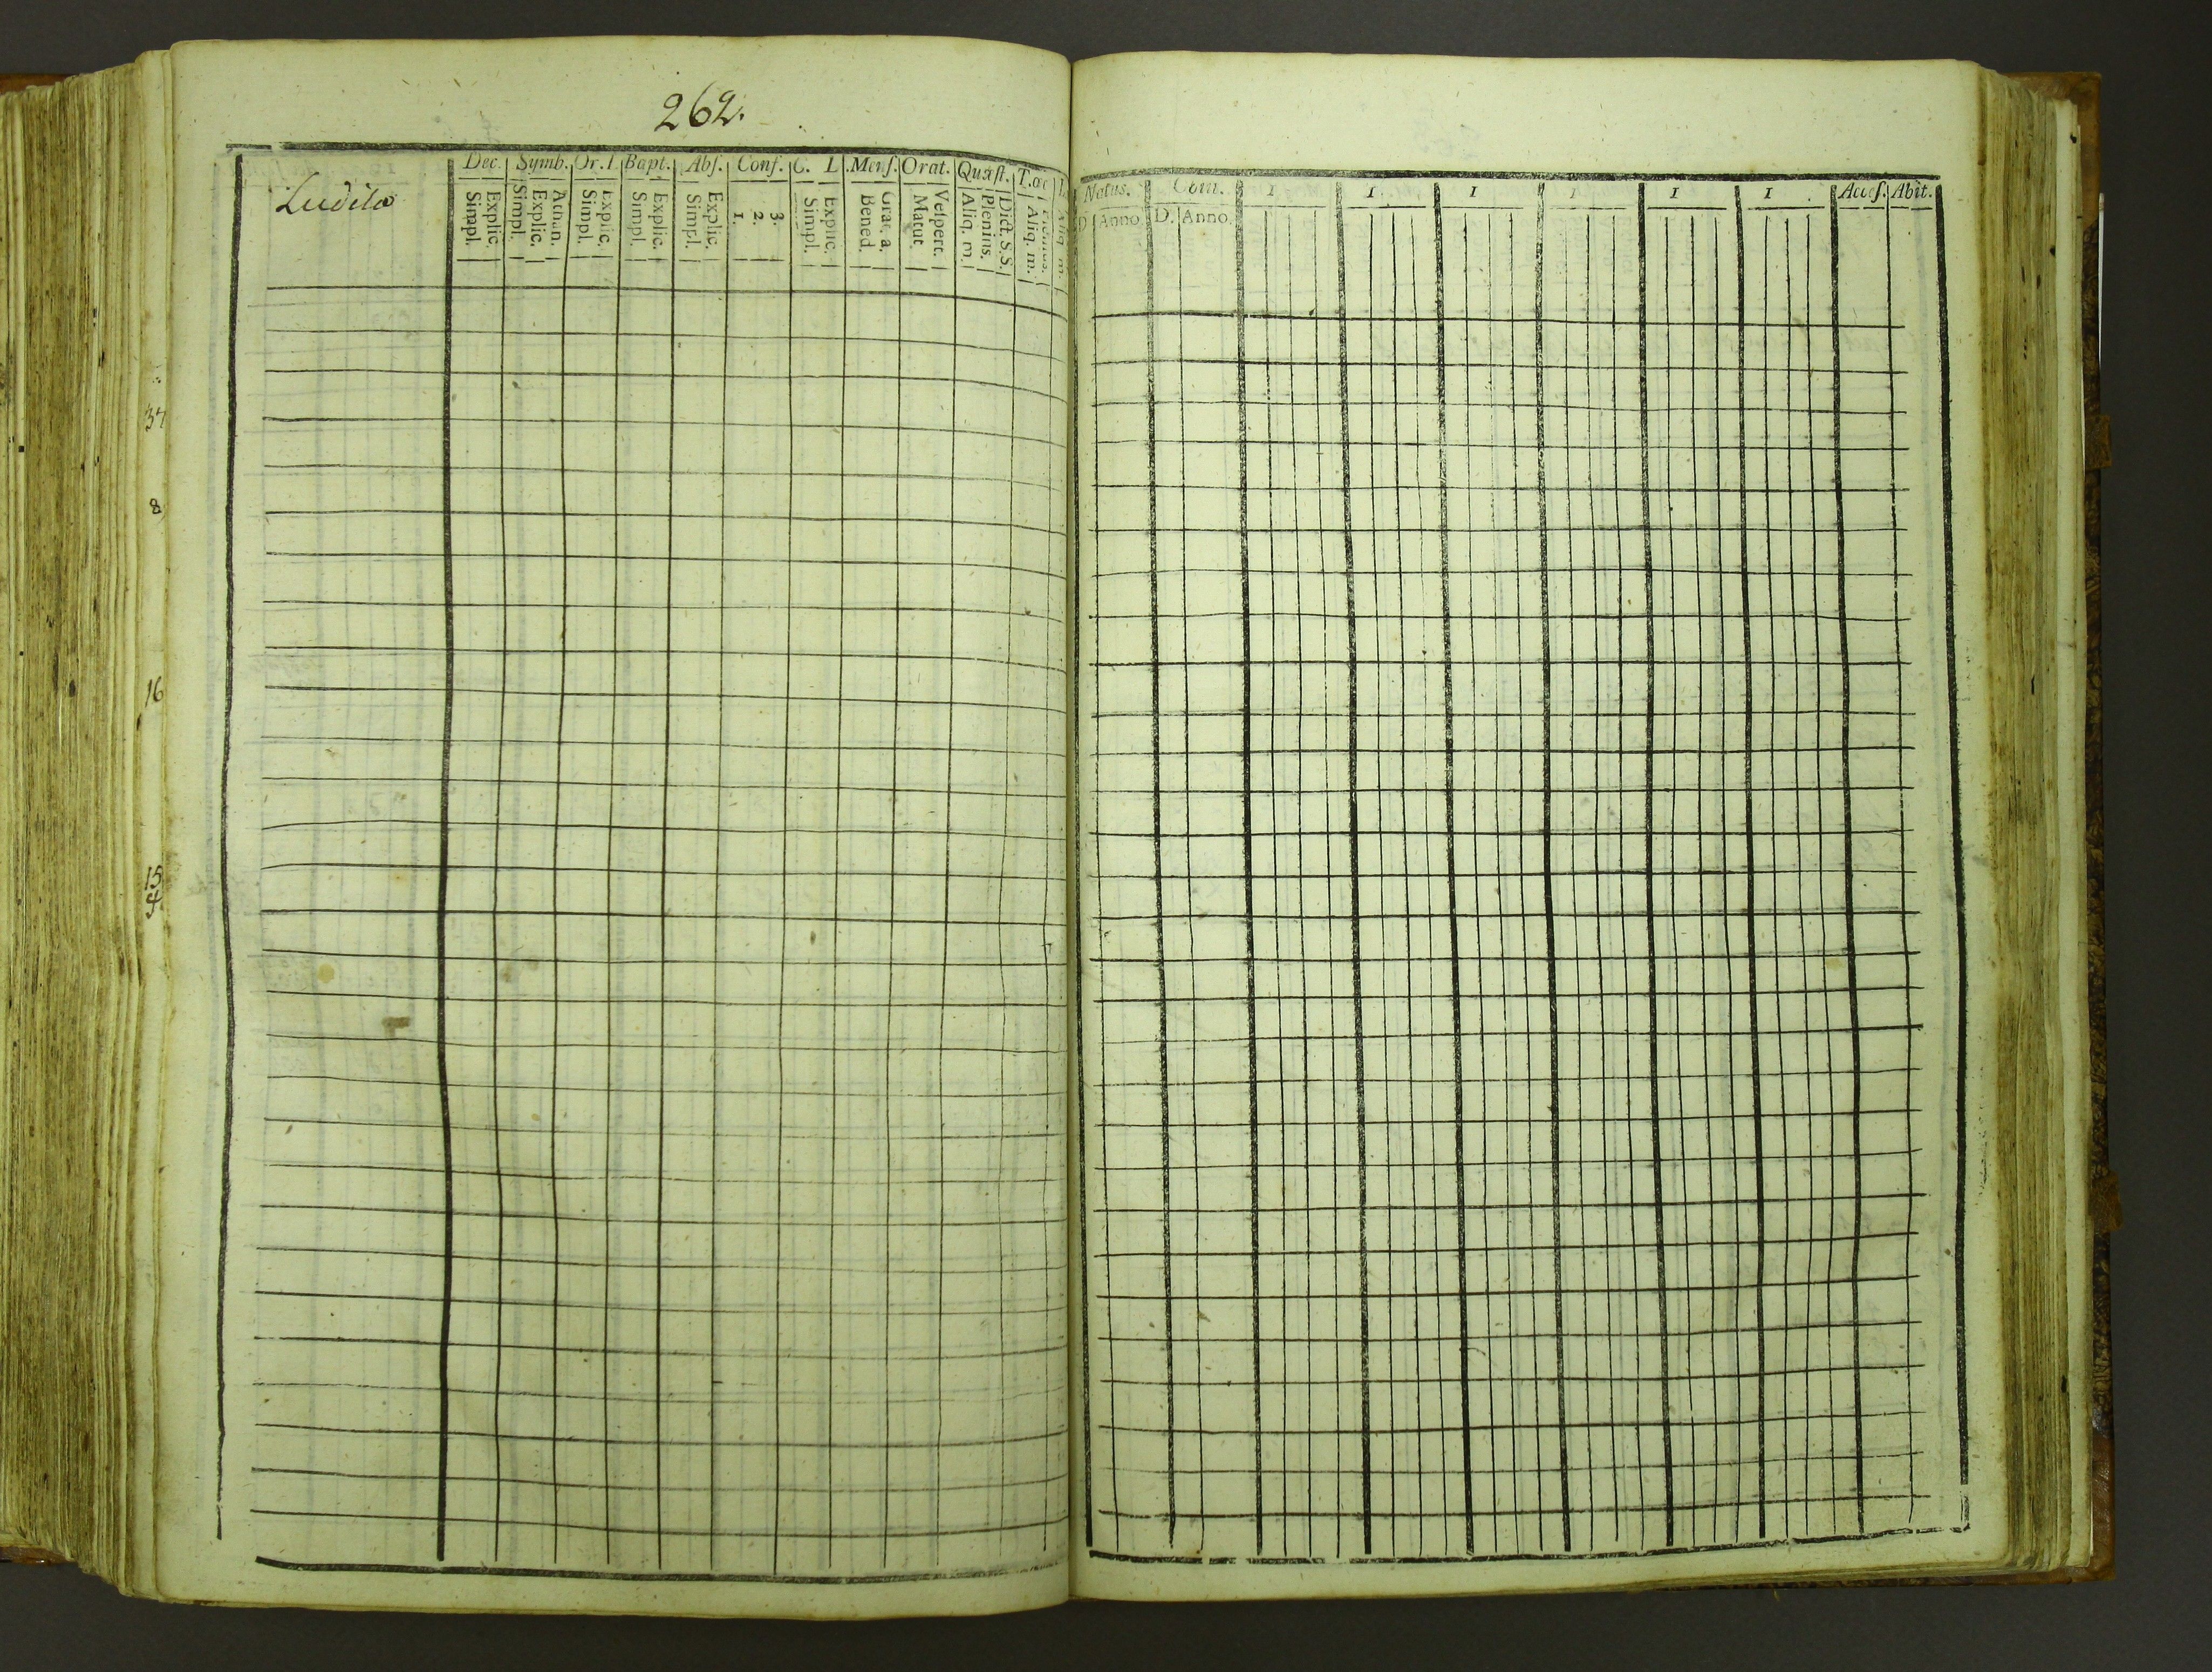 262.
Ludila
Dec. Symb. Or. Bapt. Abs. Conf. C. L Mens. Orat. Quæst. T.œc
Simpl. Explic. Simpl. Explic. Athan. Simpl. Explic. Simpl. Explic. Simpl. Explic. 1. 2. 3. Simpl. Explic. Bened. Grat. a. Matut. Vespert. Aliq. m. Plenius. Dict. S.S. Aliq. m. Plenius. Aliq. m.
Natus. Com. I I I I I I Acces. Abit.
D. Anno D. Anno
37
8
16
15
4